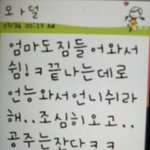 모ㅏ덜
07/26 00:27 AM
엄마도짐들어와서
쉼!ㅋ끝나는데로
언능와서언니쉬라
해..조심히오고..
공주는잔다ㅋㅋ